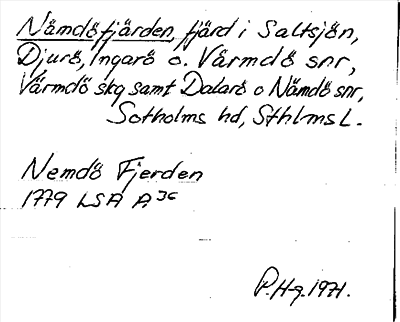 Nämdöfjärden, fjärd i Saltsjön,
Djurö, Ingarö o. Värmdö snr,
Värmdö skg samt Dalarö o Nämdö snr,
Sotholms hd, Sthlms L.
Nemdö Fjerden
1779 LSA A 36
P. Hg. 1971.